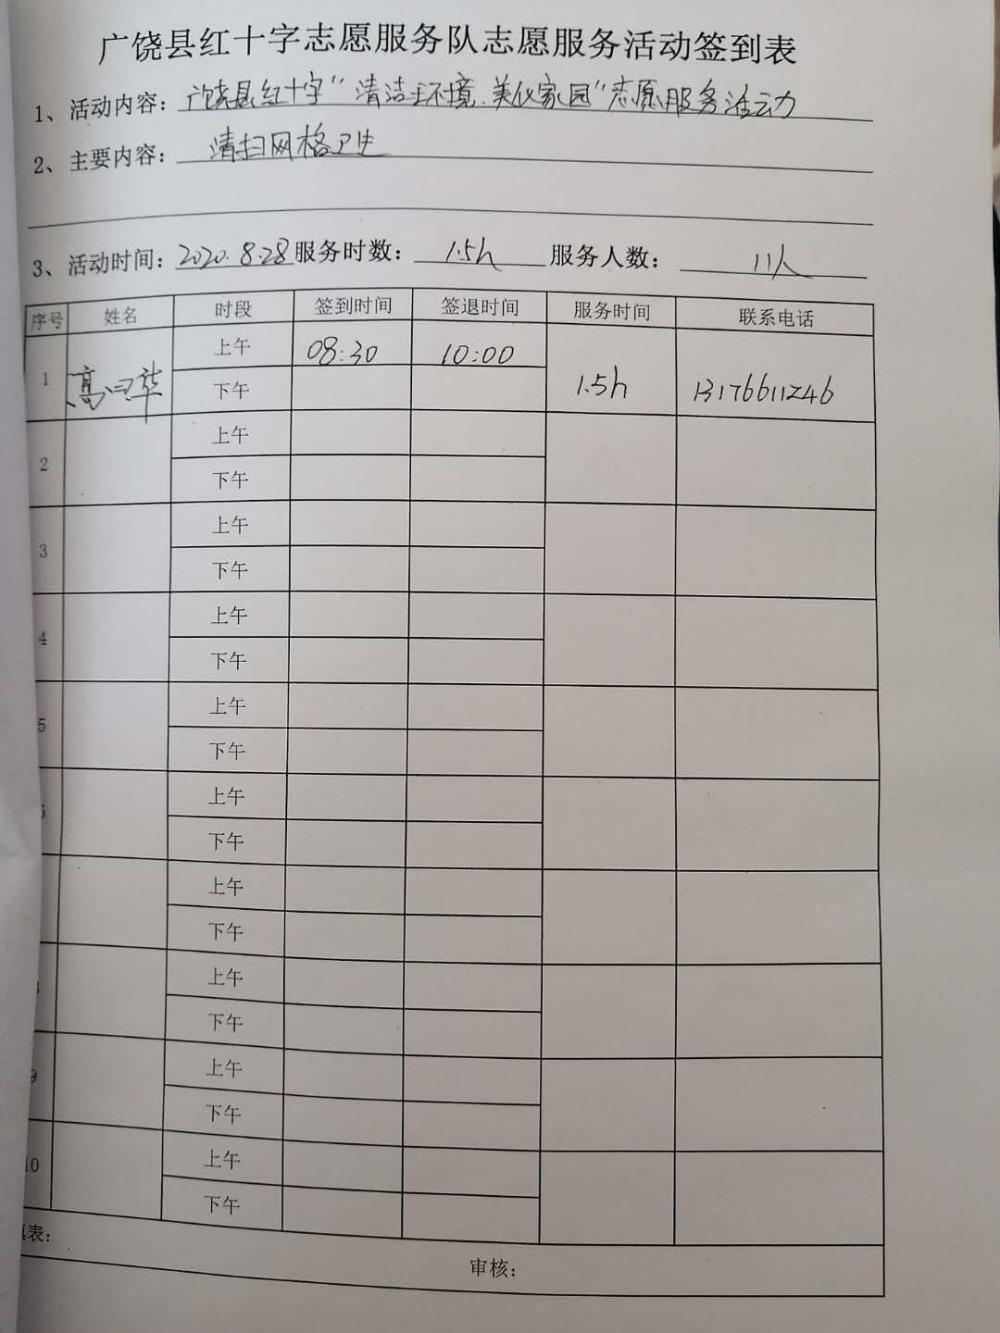 广饶县红十字志愿服务队志愿服务活动签到表
1、活动内容：广饶县红十字“清洁环境.美化家园”志愿服务活动
2、主要内容：清扫网格卫生
3、活动时间：2020.8.28服务时数：1.5h 服务人数：11人
序号 姓名 时段 签到时间 签退时间 服务时间 联系电话
1 高 华 上午 08:30 10:00 1.5h 13176611246
下午
2 上午
下午
3 上午
下午
4 上午
下午
5 上午
下午
上午
下午
上午
下午
上午
下午
9 上午
下午
10 上午
下午
表：
审核：